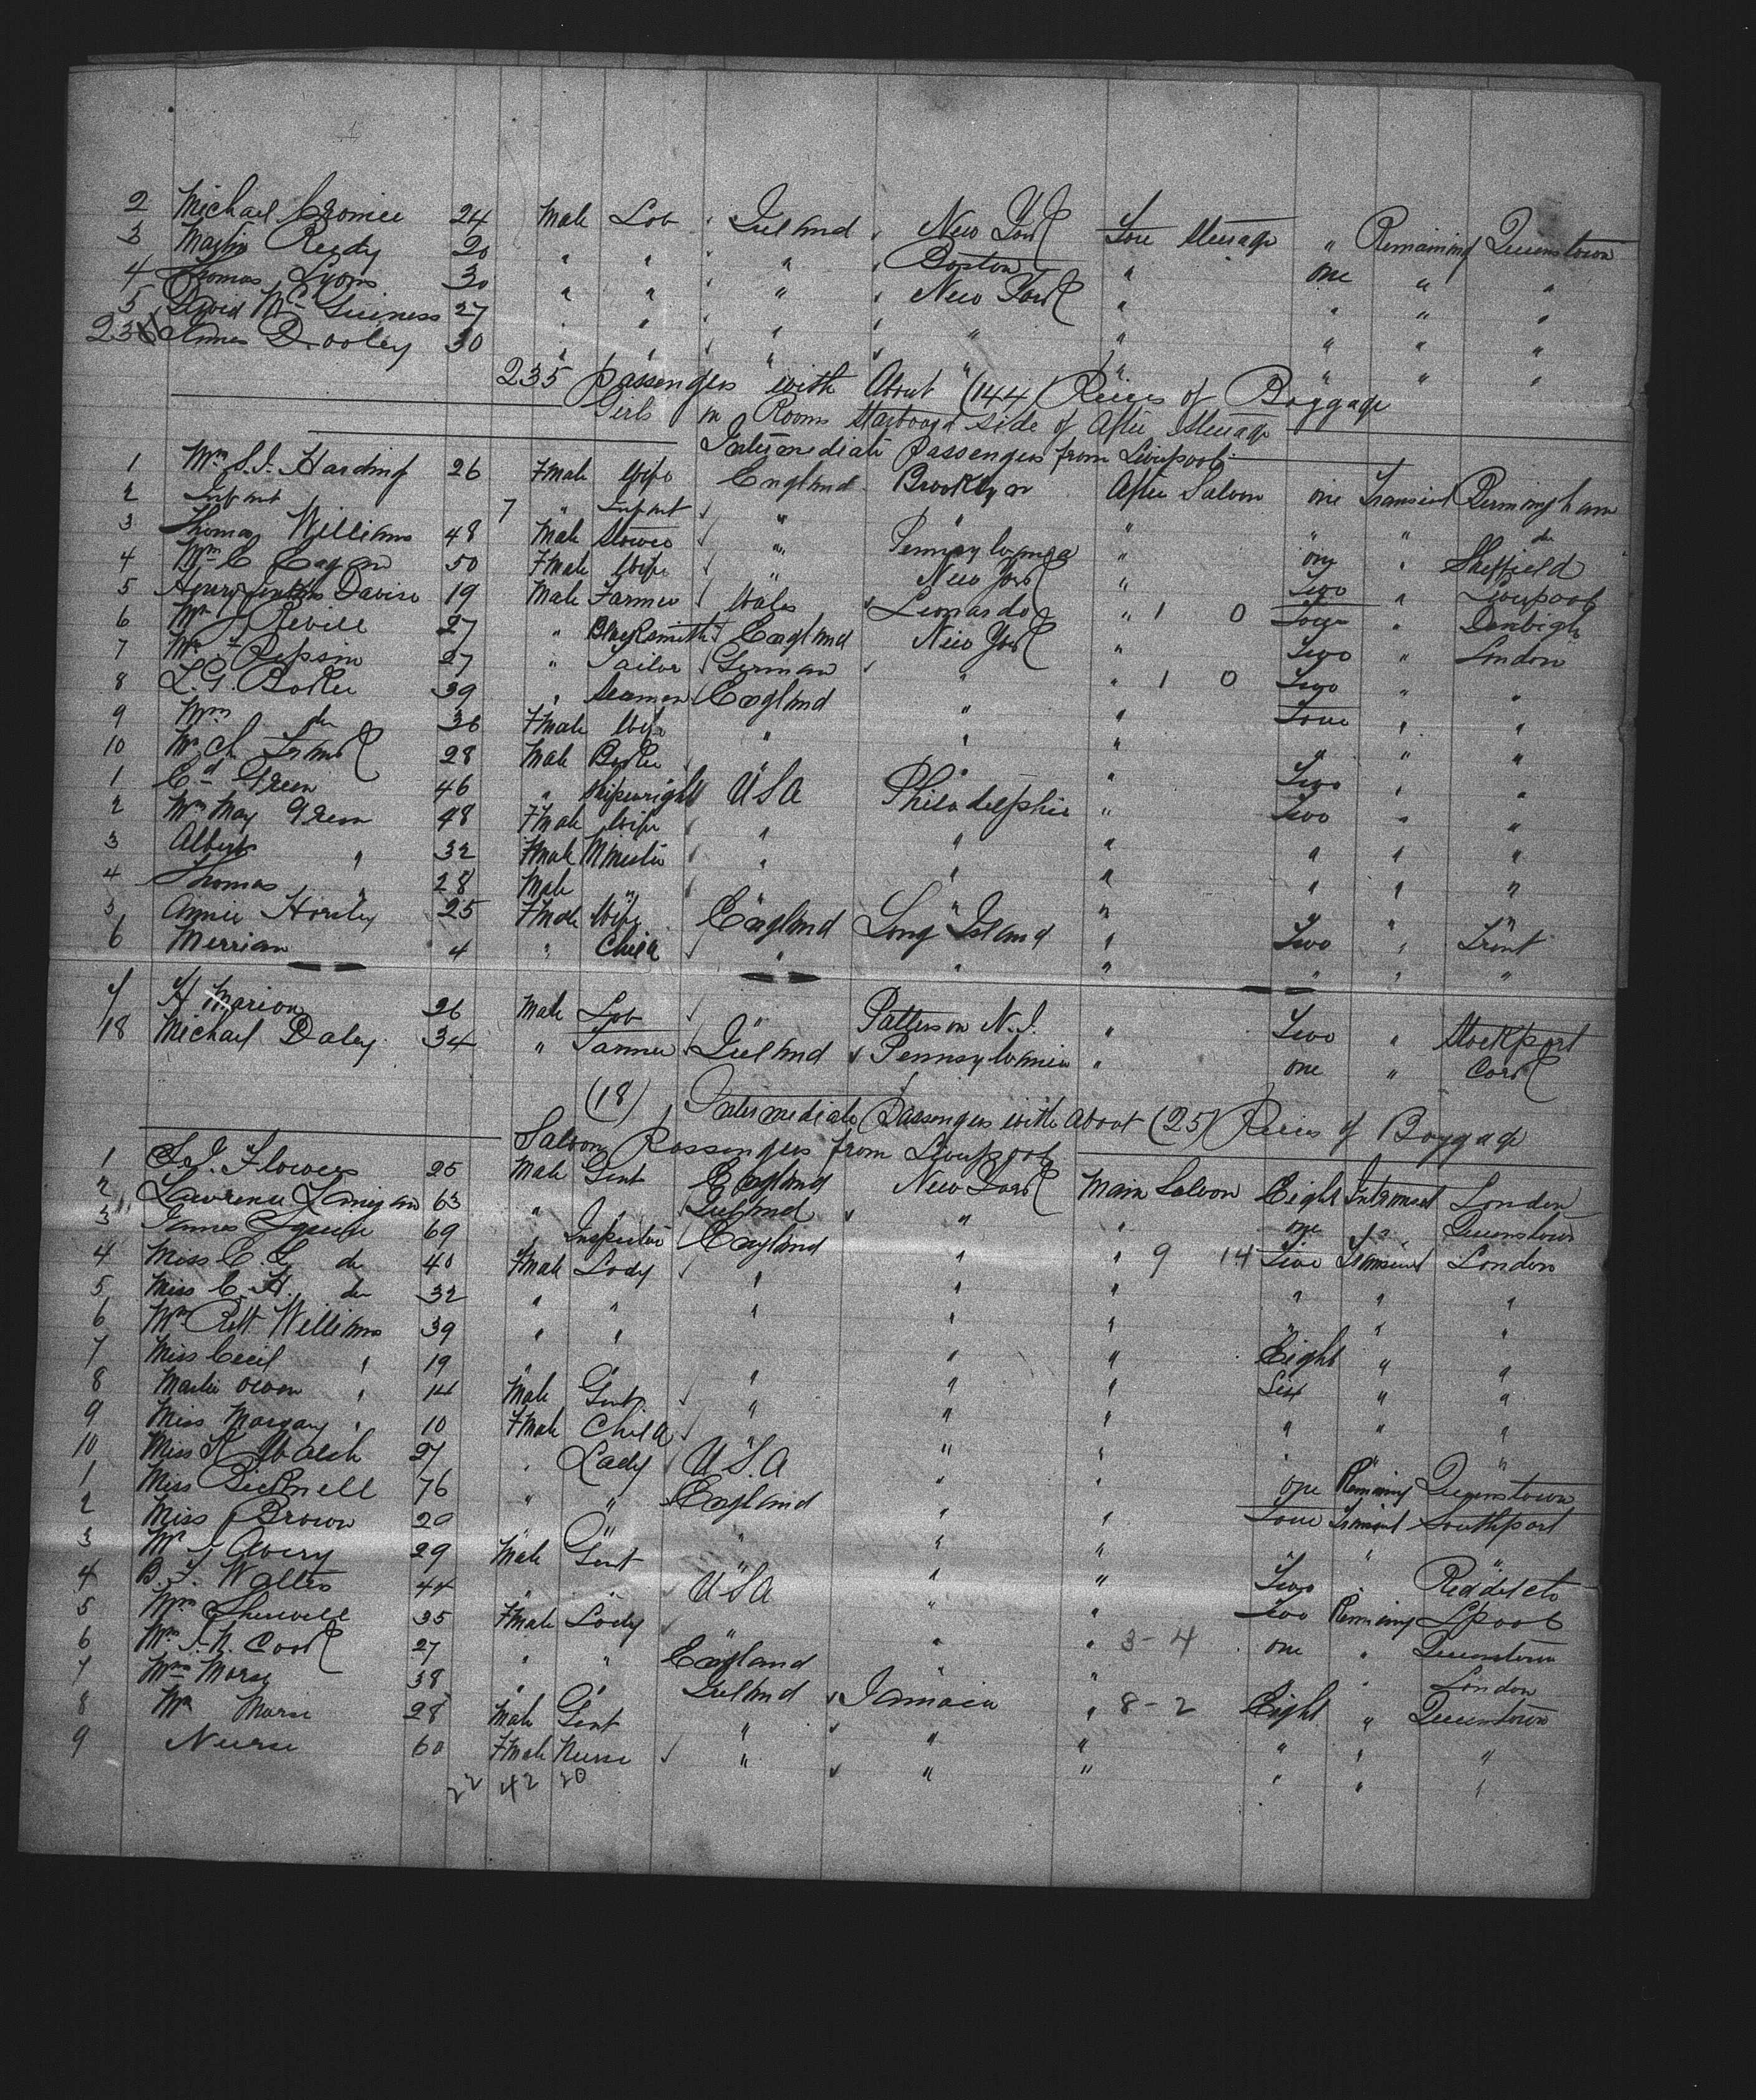 2 Michael Cromie 24 Male Lab " Ireland " New York Fore Steerage " Remaining Queenstown
3 Martin Reedy 20 " " " " Boston " one " "
4 Thomas Lyons 30 " " " " New York " " " "
5 David McGuiness 27 " " " " " " " " "
235 James Dooley 30 " " " " " " " " "
235 Passengers with About (144) Pieces of Baggage
Girls in Rooms Starboard side of After Steerage
Intermediate Passengers from Liverpool
1 Mrs S.J. Harding 26 Fmale Wife England Brooklyn After Saloon one Transient Birmingham
2 Infant 7 " Infant " " " " " do
3 Thomas Williams 48 Male " Pennsylvania " one " Sheffield
4 Mrs C 50 Fmale Wife " New York " Two " Liverpool
5 Davies 19 Male Farmer Wales Leonardo " 1 0 Four " Denbigh
6 Mr J Revill 27 " Blacksmith England New York " Two " London
7 Mr 27 " Tailor German " " 1 0 Two " "
8 L.G. 39 " Seaman England " " Four " "
9 Mrs do 36 Fmale Wife " " " " " "
10 Mr Ch 28 Male " " " Two " "
1 Ed Green 46 " Shipwright USA Philadelphia " Two " "
2 Mrs May Green 48 Fmale Wife " " " " " "
3 Albert " 32 Fmale " " " " " "
4 Thomas " 28 Male " " " " " " "
5 Annie Horsley 25 Fmale Wife England Long Island " Two " Trent
6 Merriam 4 " Child " " " " " "
7 H Marion 26 Male Lab " Patterson N.J. " Two " Stockport
18 Michael Daley 34 " Farmer Ireland Pennsylvania " one " Cork
(18) Intermediate Passengers with About (25) Pieces of Baggage
Saloon Passengers from Liverpool
1 S.J. Flowers 25 Male Gent England New York Main Saloon Eight London
2 Lawrence Lanigan 63 " " Ireland " " one " Queenstown
3 James Squire 69 " Inspector England " " 9 14 Five Transient London
4 Miss E.G. do 40 Fmale Lady " " " " " "
5 Miss E.H. do 32 " " " " " " " "
6 Mrs Williams 39 " " " " " Eight " "
7 Miss Cecil " 19 " " " " " Six " "
8 Master Owen " 14 Male Gent " " " " " "
9 Miss " 10 Fmale Child " " " " " "
10 Miss K Walsh 27 " Lady U.S.A " " one Remaining Queenstown
1 Miss Bicknell 76 " " England " " Four Transient Southport
2 Miss Brown 20 " " " " " " " "
3 Mr J Avery 29 Male Gent " " " Two " Redditch
4 B.F. Walters 44 " " USA " " Two Remaining Lpool
5 Mrs Sherwell 35 Fmale Lady " " " 3-4 one " Queenstown
6 Mrs J.N. Cook 27 " " England " " " London
7 Mrs Morse 38 " " Ireland Jamaica " 8-2 Eight " Queenstown
8 Mr Morse 28 Male Gent " " " " " "
9 Nurse 60 Fmale Nurse " " " " " "
22 42 20